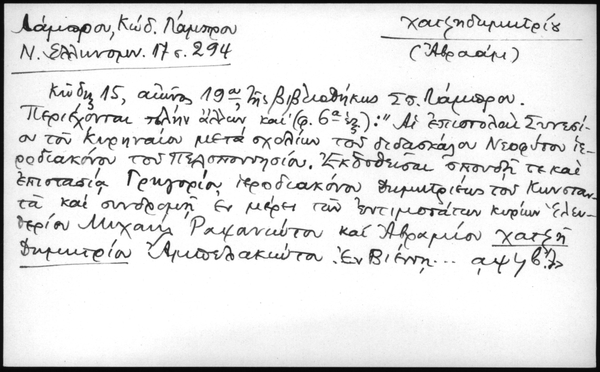 Λάμπρου, Κώδ. Λάμπρου
Ν. Ελληνομν. 17 σ. 294
Χατζηδημητρίου
(Ἀβραάμ)
Κῶδιξ 15, αἰῶνος 19ου, τῆς βιβλιοθήκης Σπ. Λάμπρου.
Περιέχονται πλὴν ἄλλων καὶ (φ. 6α ἑξ): "Αἱ ἐπιστολαὶ Συνεσί-
ου τοῦ Κυρηναίου μετὰ σχολίων τοῦ διδασκάλου Νεοφύτου ἱε-
ροδιακόνου τοῦ Πελοποννησίου. Ἐκδοθεῖσαι σπουδῇ τε καὶ
ἐπιστασίᾳ Γρηγορίου ἱεροδιακόνου Δημητριέως τοῦ Κωνσταν-
τᾶ καὶ συνδρομῇ ἐν μέρει τῶν ἐντιμοτάτων κυρίων Ἐλευ-
θερίου Μιχαὴλ Ραφανιώτου καὶ Ἀβραμίου Χατζῆ
Δημητρίου Ἀμπελακιώτου. Ἐν Βιέννῃ... αψϟβ΄."